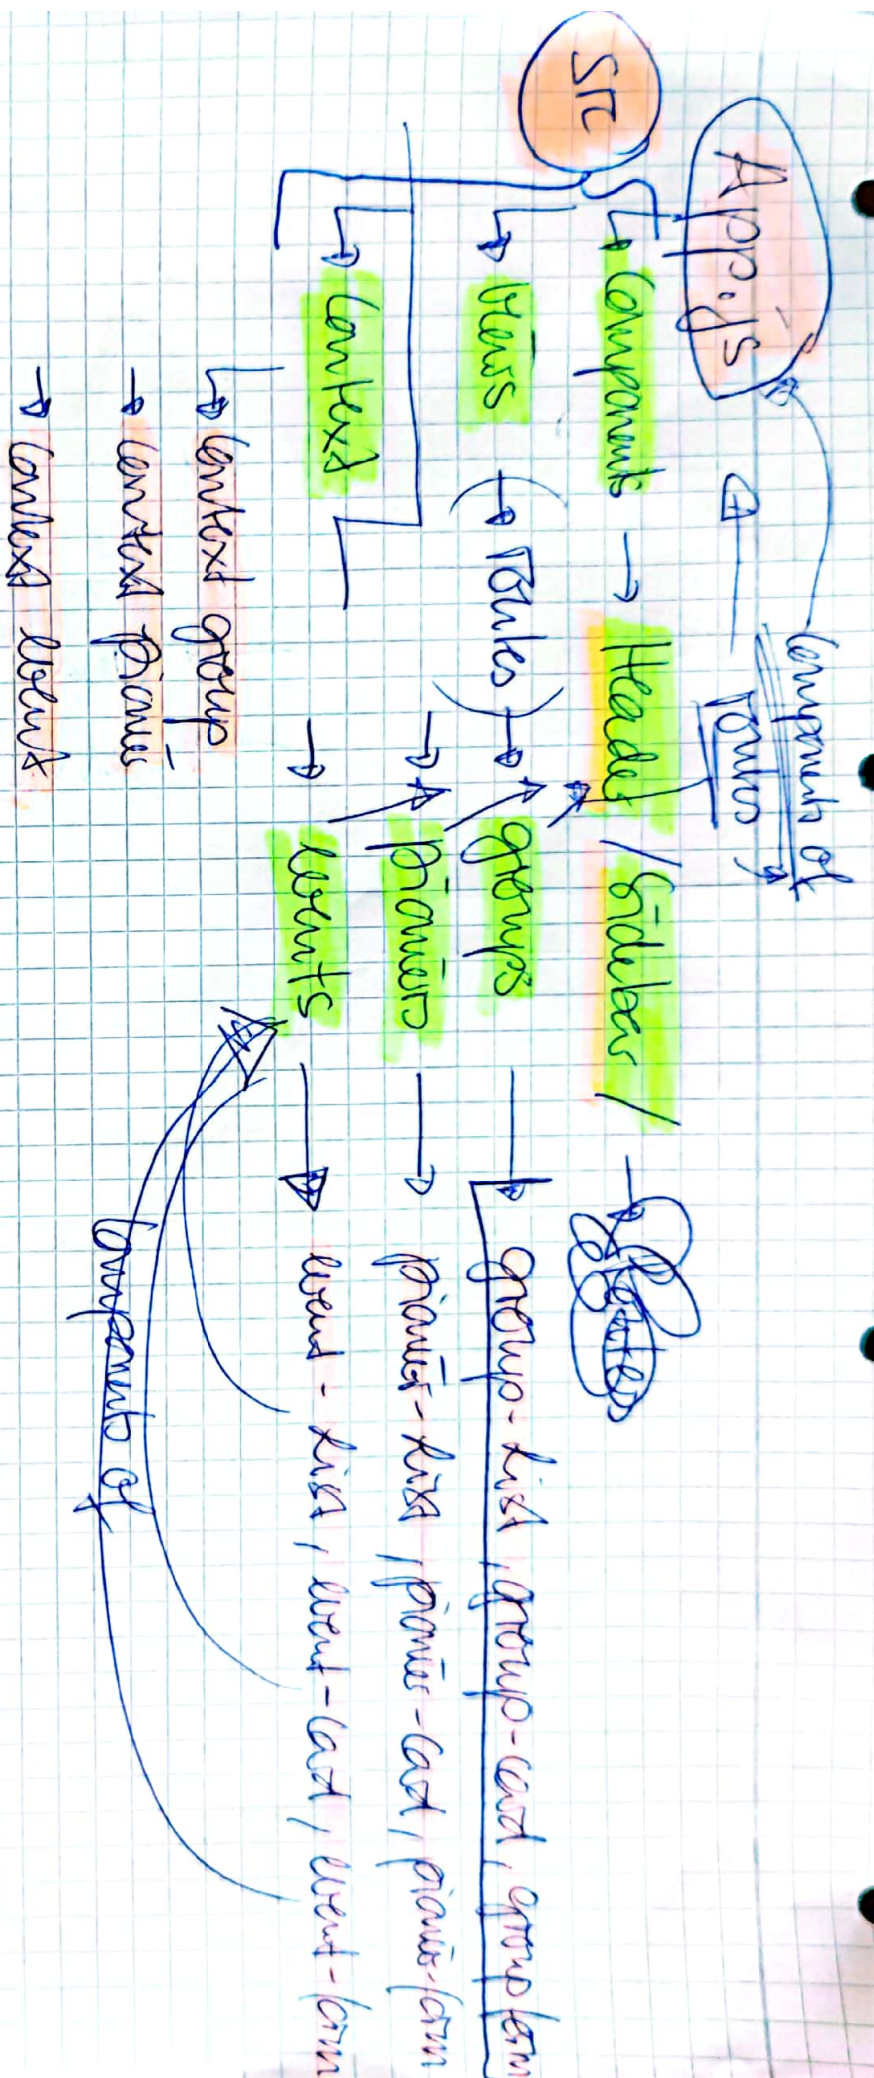 Components of
App.js
Routes,
src
Components → Header / Sidebar /
Views
(→ Routes)
→ groups → group-list, group-card, group form
→ pianos → pianos-list, pianos-card, pianos-form
Context
→ events → event-list, event-card, event-form
Components of
Context group
Context pianos
Context event